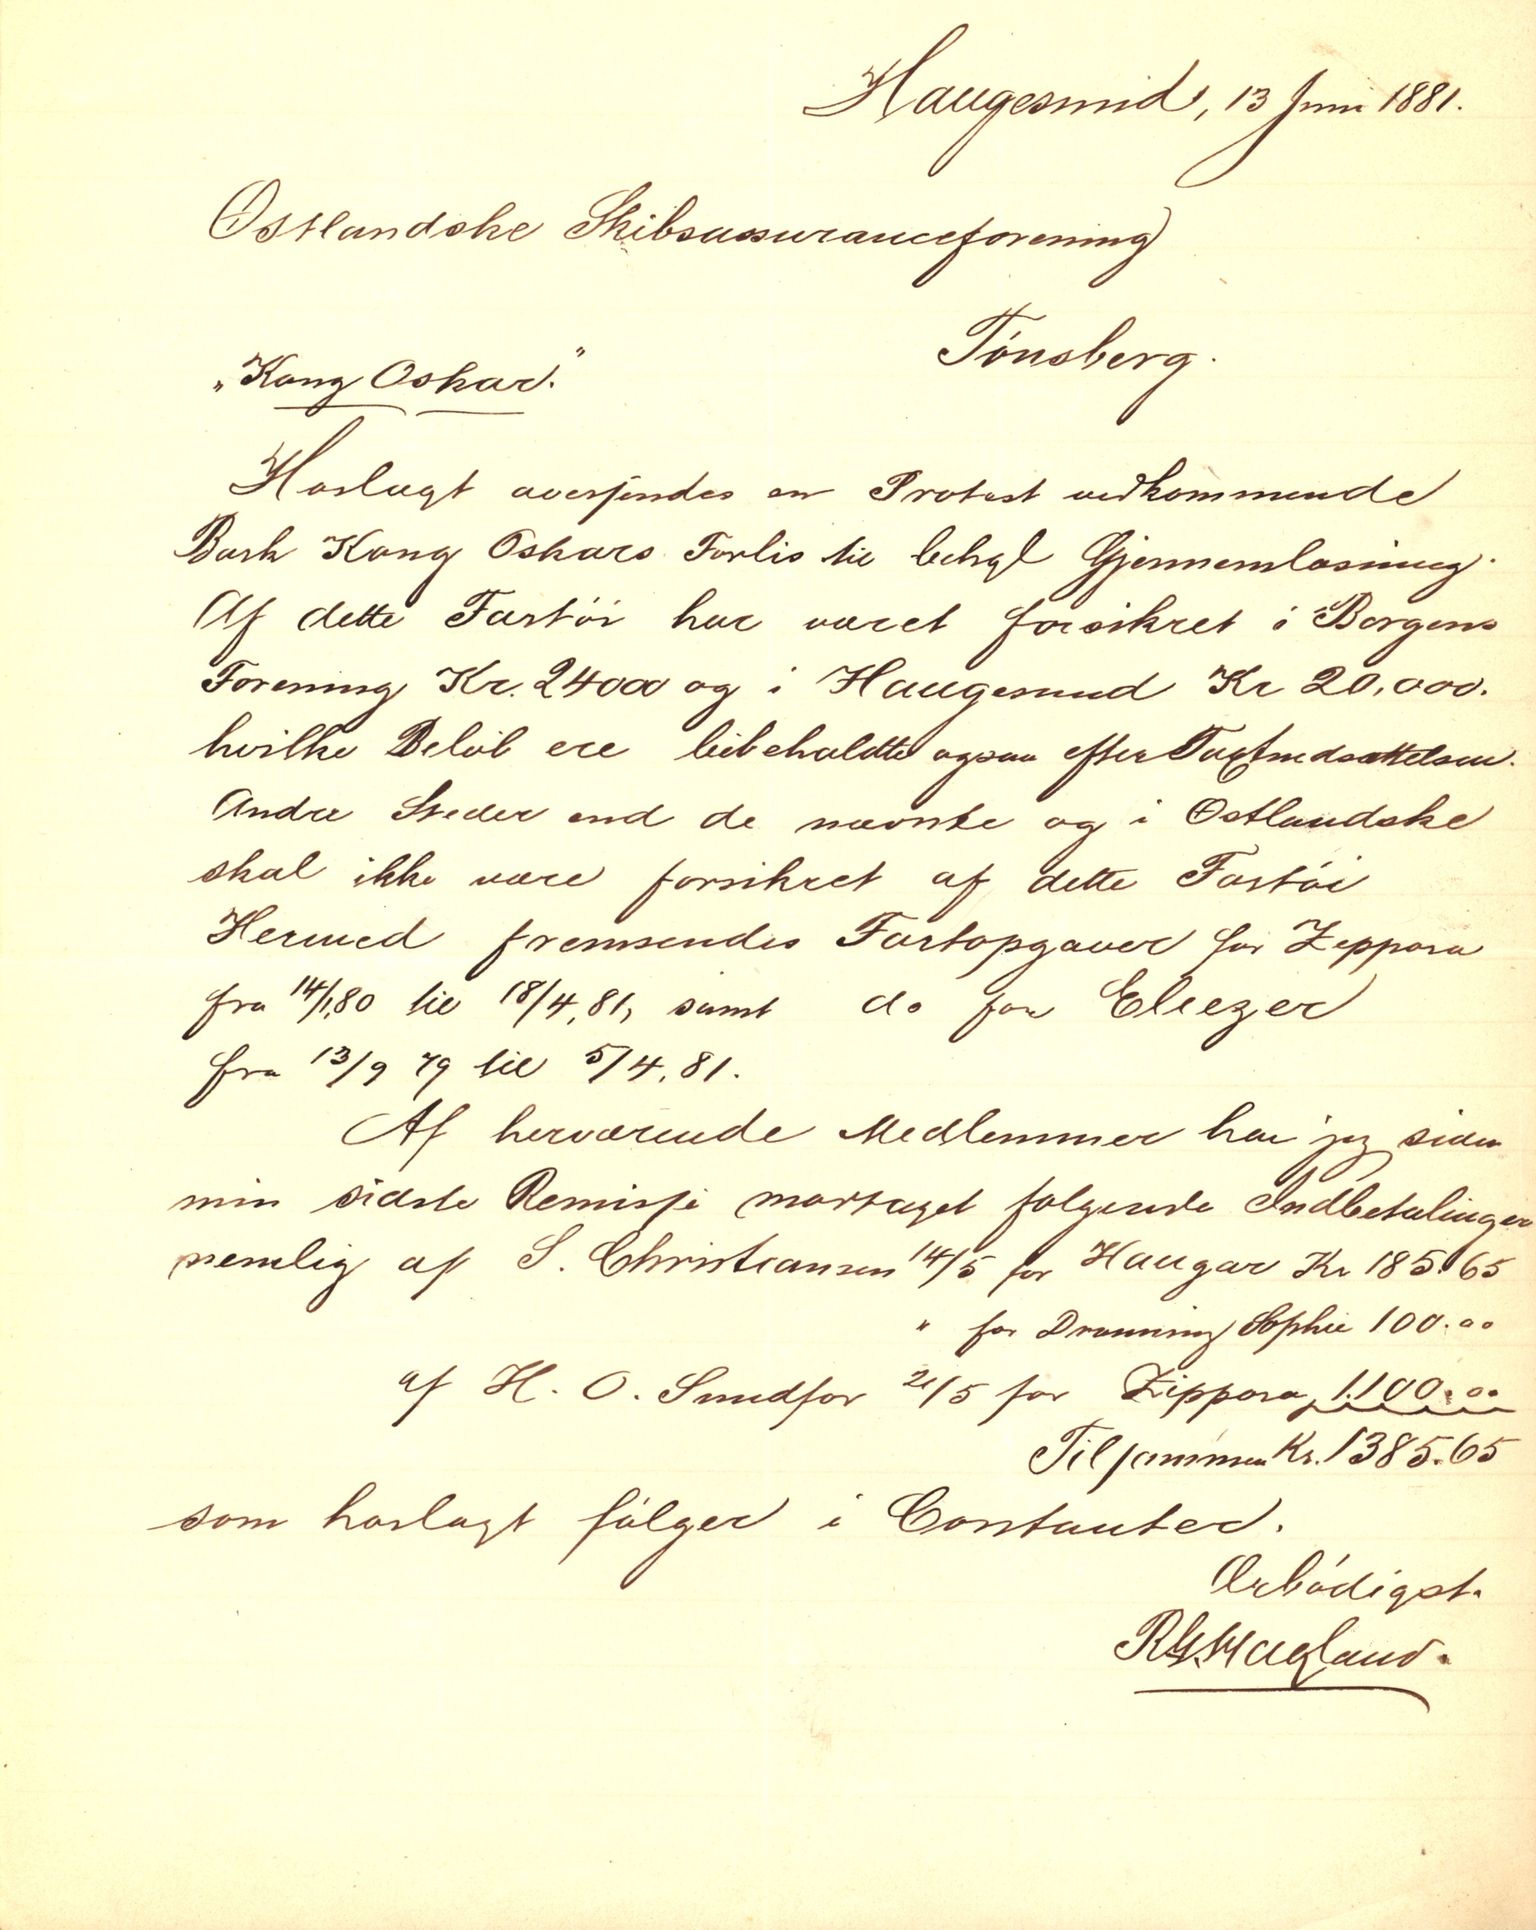 Haugesund, 13 Juni 1881.
Østlandske Skibsassuranceforening
Tönsberg.
„Kong Oskar."
Hoslagt oversendes en Protest vedkommende
Bark Kong Oskars Forlis til behgl Gjennemlæsning.
Af dette Fartöi har været forsikret i Bergens
Forening Kr. 24000 og i Haugesund Kr 20.000.
hvilke Belöb ere bibeholdte ogsaa efter Taxtnedsættelsen.
Andre Steder end de nævnte og i Østlandske
skal ikke være forsikret af dette Fartöi
Hermed fremsendes Fartopgaver for Zeppora
fra 14/1,80 til 18/4,81, samt do for Eliezer
fra 13/9 79 til 5/4,81.
Af herværende Medlemmer har jeg siden
min sidste Remisse modtaget folgende Indbetalinger
nemlig af S. Christiansen 14/5 for Haugar Kr 185.65
" for Dronning Sophie 100.00
af H. O. Sundfor 21/5 for Zippora 1.100.00
Tilsammen Kr. 1385.65
som hoslagt fölger i Contanter.
Ærbödigst.
Hagland.